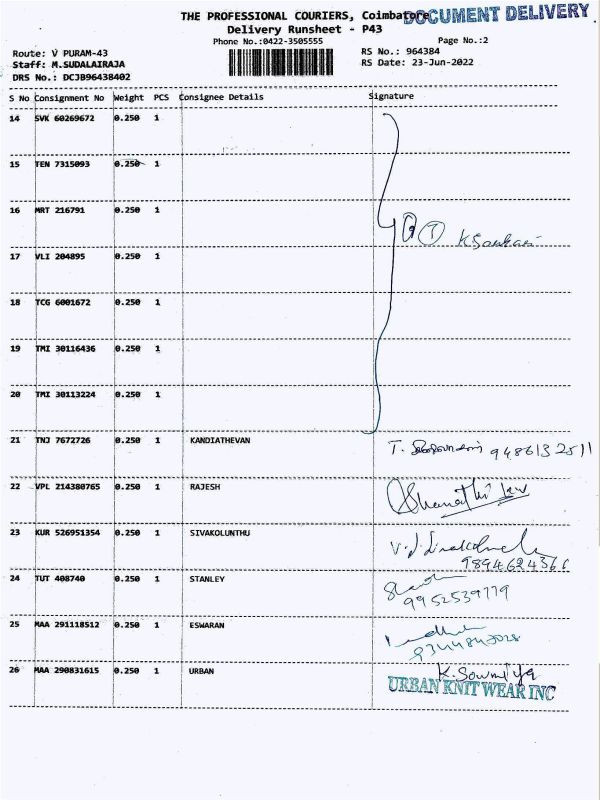 THE PROFESSIONAL COURIERS, Coimbatore
DOCUMENT DELIVERY
Delivery Runsheet - P43
Phone No.:0422-3505555
Page No.:2
Route: V PURAM-43
RS No.: 964384
Staff: M.SUDALAIRAJA
RS Date: 23-Jun-2022
DRS No.: DCJB96438402
S No Consignment No Weight PCS Consignee Details Signature
14 SVK 60269672 0.250 1
15 TEN 7315093 0.250 1
16 MRT 216791 0.250 1
7 K Sankari
17 VLI 204895 0.250 1
18 TCG 6001672 0.250 1
19 TMI 30116436 0.250 1
20 TMI 30113224 0.250 1
21 TNJ 7672726 0.250 1 KANDIATHEVAN T. 9486132511
22 VPL 214380765 0.250 1 RAJESH
23 KUR 526951354 0.250 1 SIVAKOLUNTHU
9894624366
24 TUT 408740 0.250 1 STANLEY
9952539779
25 MAA 291118512 0.250 1 ESWARAN
26 MAA 290831615 0.250 1 URBAN K. Sowmiya
URBAN KNIT WEAR INC